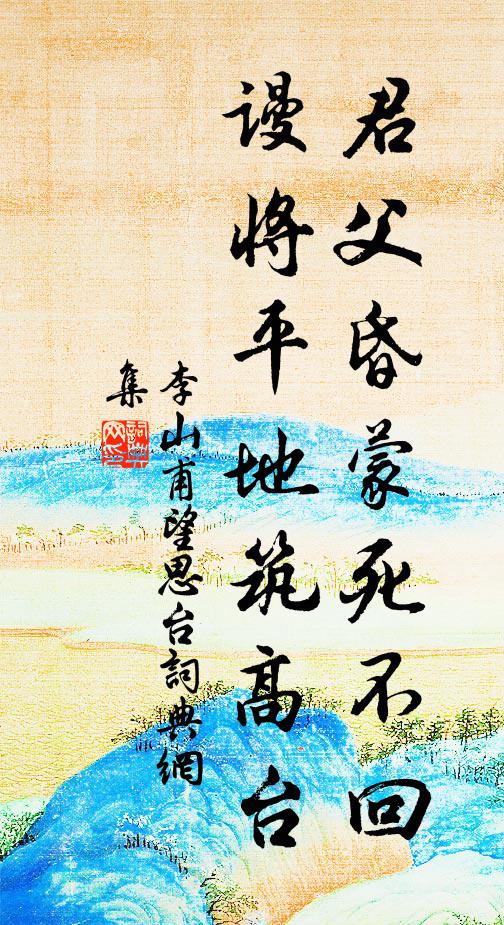 君父昏蒙死不回
谩将平地筑高台
李山甫望思台詞典網
集
詞典網